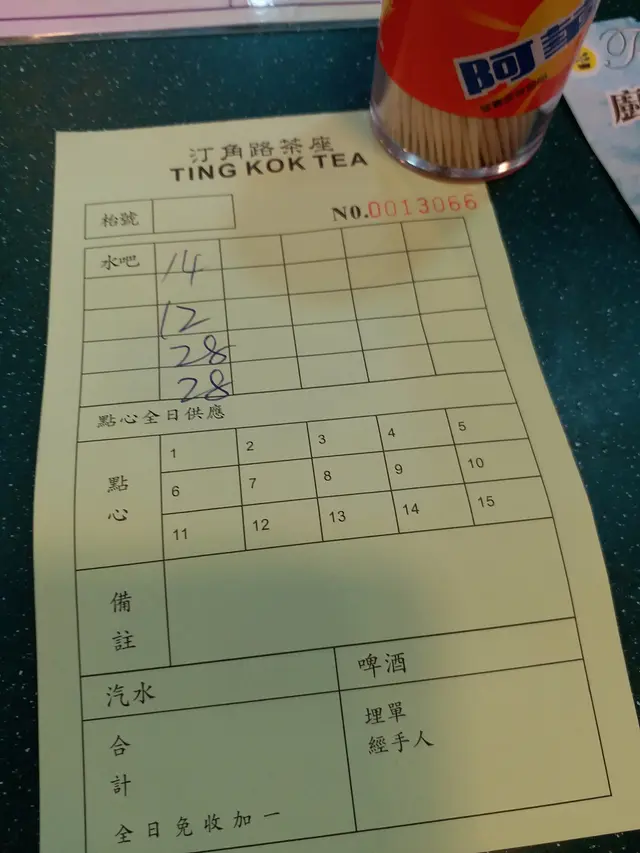 阿華
汀角路茶座
TING KOK TEA
枱號
NO.0013066
水吧 14
12
28
28
點心全日供應
點心
1 2 3 4 5
6 7 8 9 10
11 12 13 14 15
備註
汽水
啤酒
合計
埋單
經手人
全日免收加一